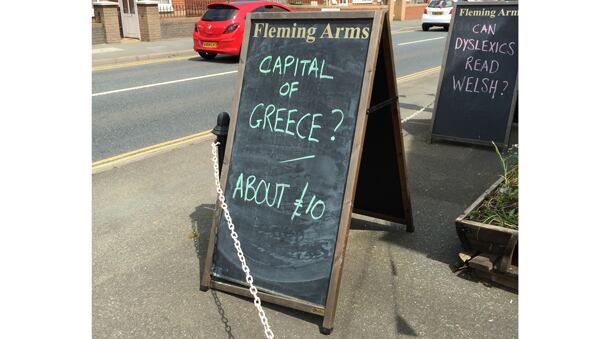 Fleming Arms
CAPITAL
OF
GREECE?
ABOUT £10
Fleming Arms
CAN
DYSLEXICS
READ
WELSH?